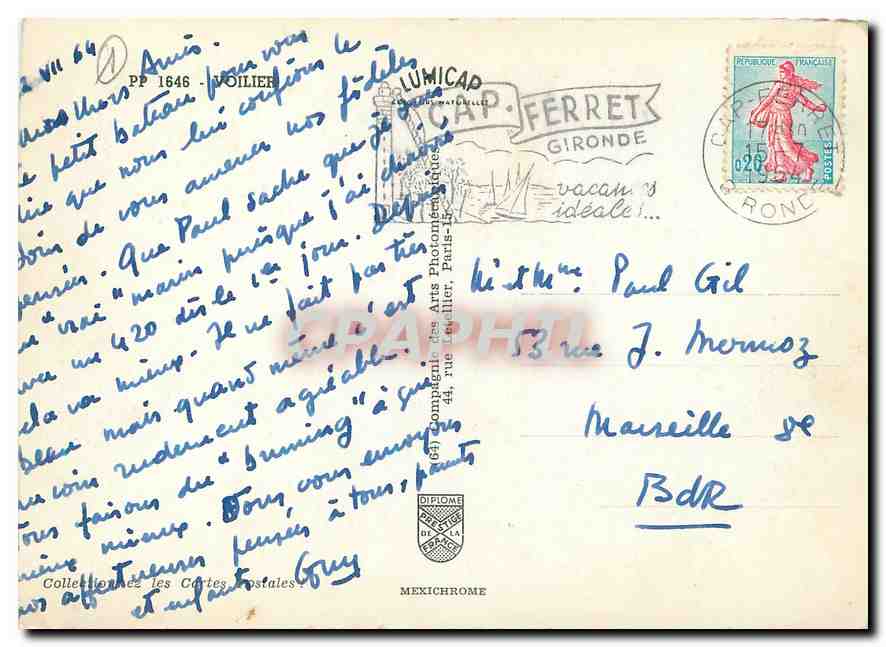 2 VII 64
1
PP 1646 - VOILIER
chers Amis.
petit bateau pour vous
dire que nous lui confions le
soin de vous amener nos fidèles
pensées. Que Paul sache que je suis
"vrai" marin puisque j'ai chaviré
avec un 420 dès le 1er jour. Depuis
cela va mieux. Il ne fait pas très
beau mais quand même c'est
un coin rudement agréable.
Nous faisons du "buming" à qui
mieux mieux. Tous, vous envoyons
nos affectueuses pensées à tous, parents
et enfants. Guy
Collectionnez les Cartes Postales !
LUMICAP
COULEURS NATURELLES
CAP-FERRET
GIRONDE
vacances
idéales...
(64) Compagnie des Arts Photomécaniques
44, rue Letellier, Paris-15e
CPAPHIL
DIPLOME
PRESTIGE
DE LA
FRANCE
MEXICHROME
REPUBLIQUE FRANÇAISE
0,20
POSTES
CAP-FERRET
GIRONDE
M et Mme Paul Gil
53 rue J. Mermoz
Marseille 8e
BdR